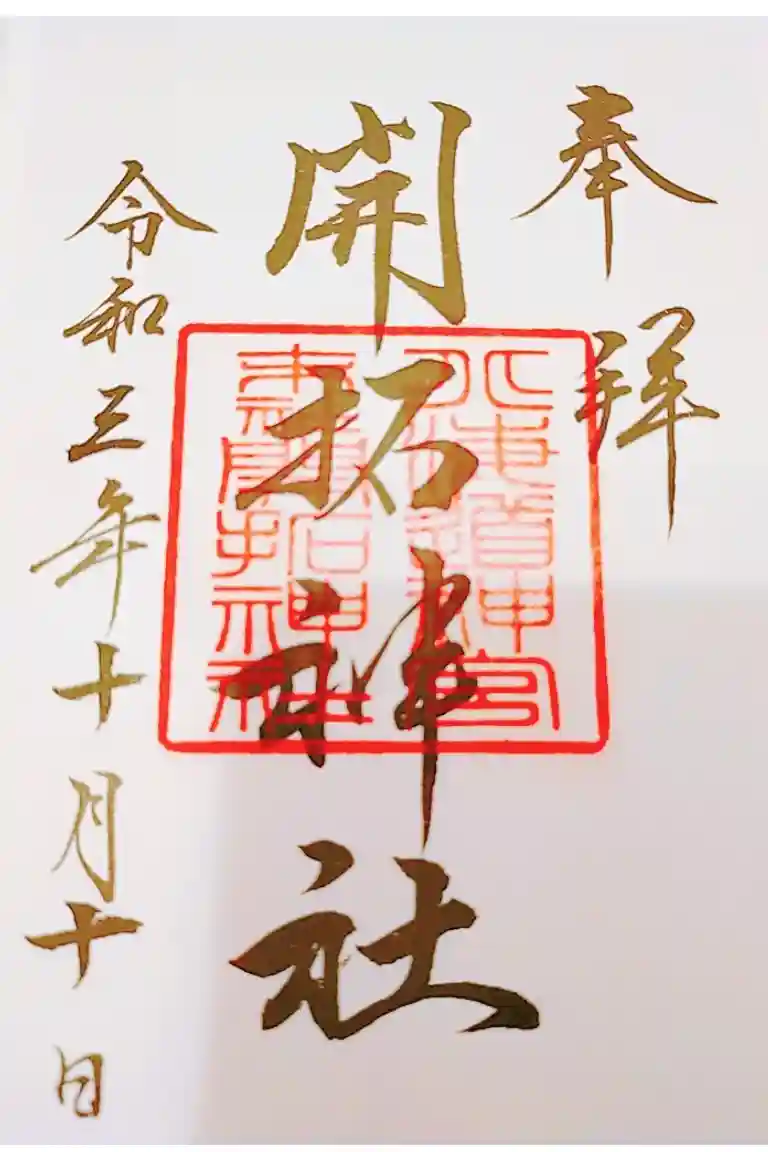 奉拝
開拓神社
令和三年十月十日
北海道神宮
末社開拓神社